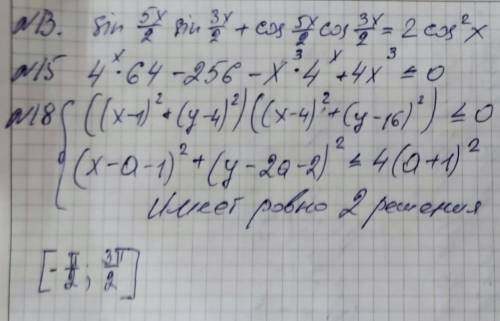 №13. sin 5x/2 sin 3x/2 + cos 5x/2 cos 3x/2 = 2 cos²x
№15 4ˣ · 64 - 256 - x³ · 4ˣ + 4x³ ≤ 0
№18 { ((x-1)² + (y-4)²)((x-4)² + (y-16)²) ≤ 0
(x-a-1)² + (y-2a-2)² ≤ 4(a+1)²
Имеет ровно 2 решения
[-π/2; 3π/2]